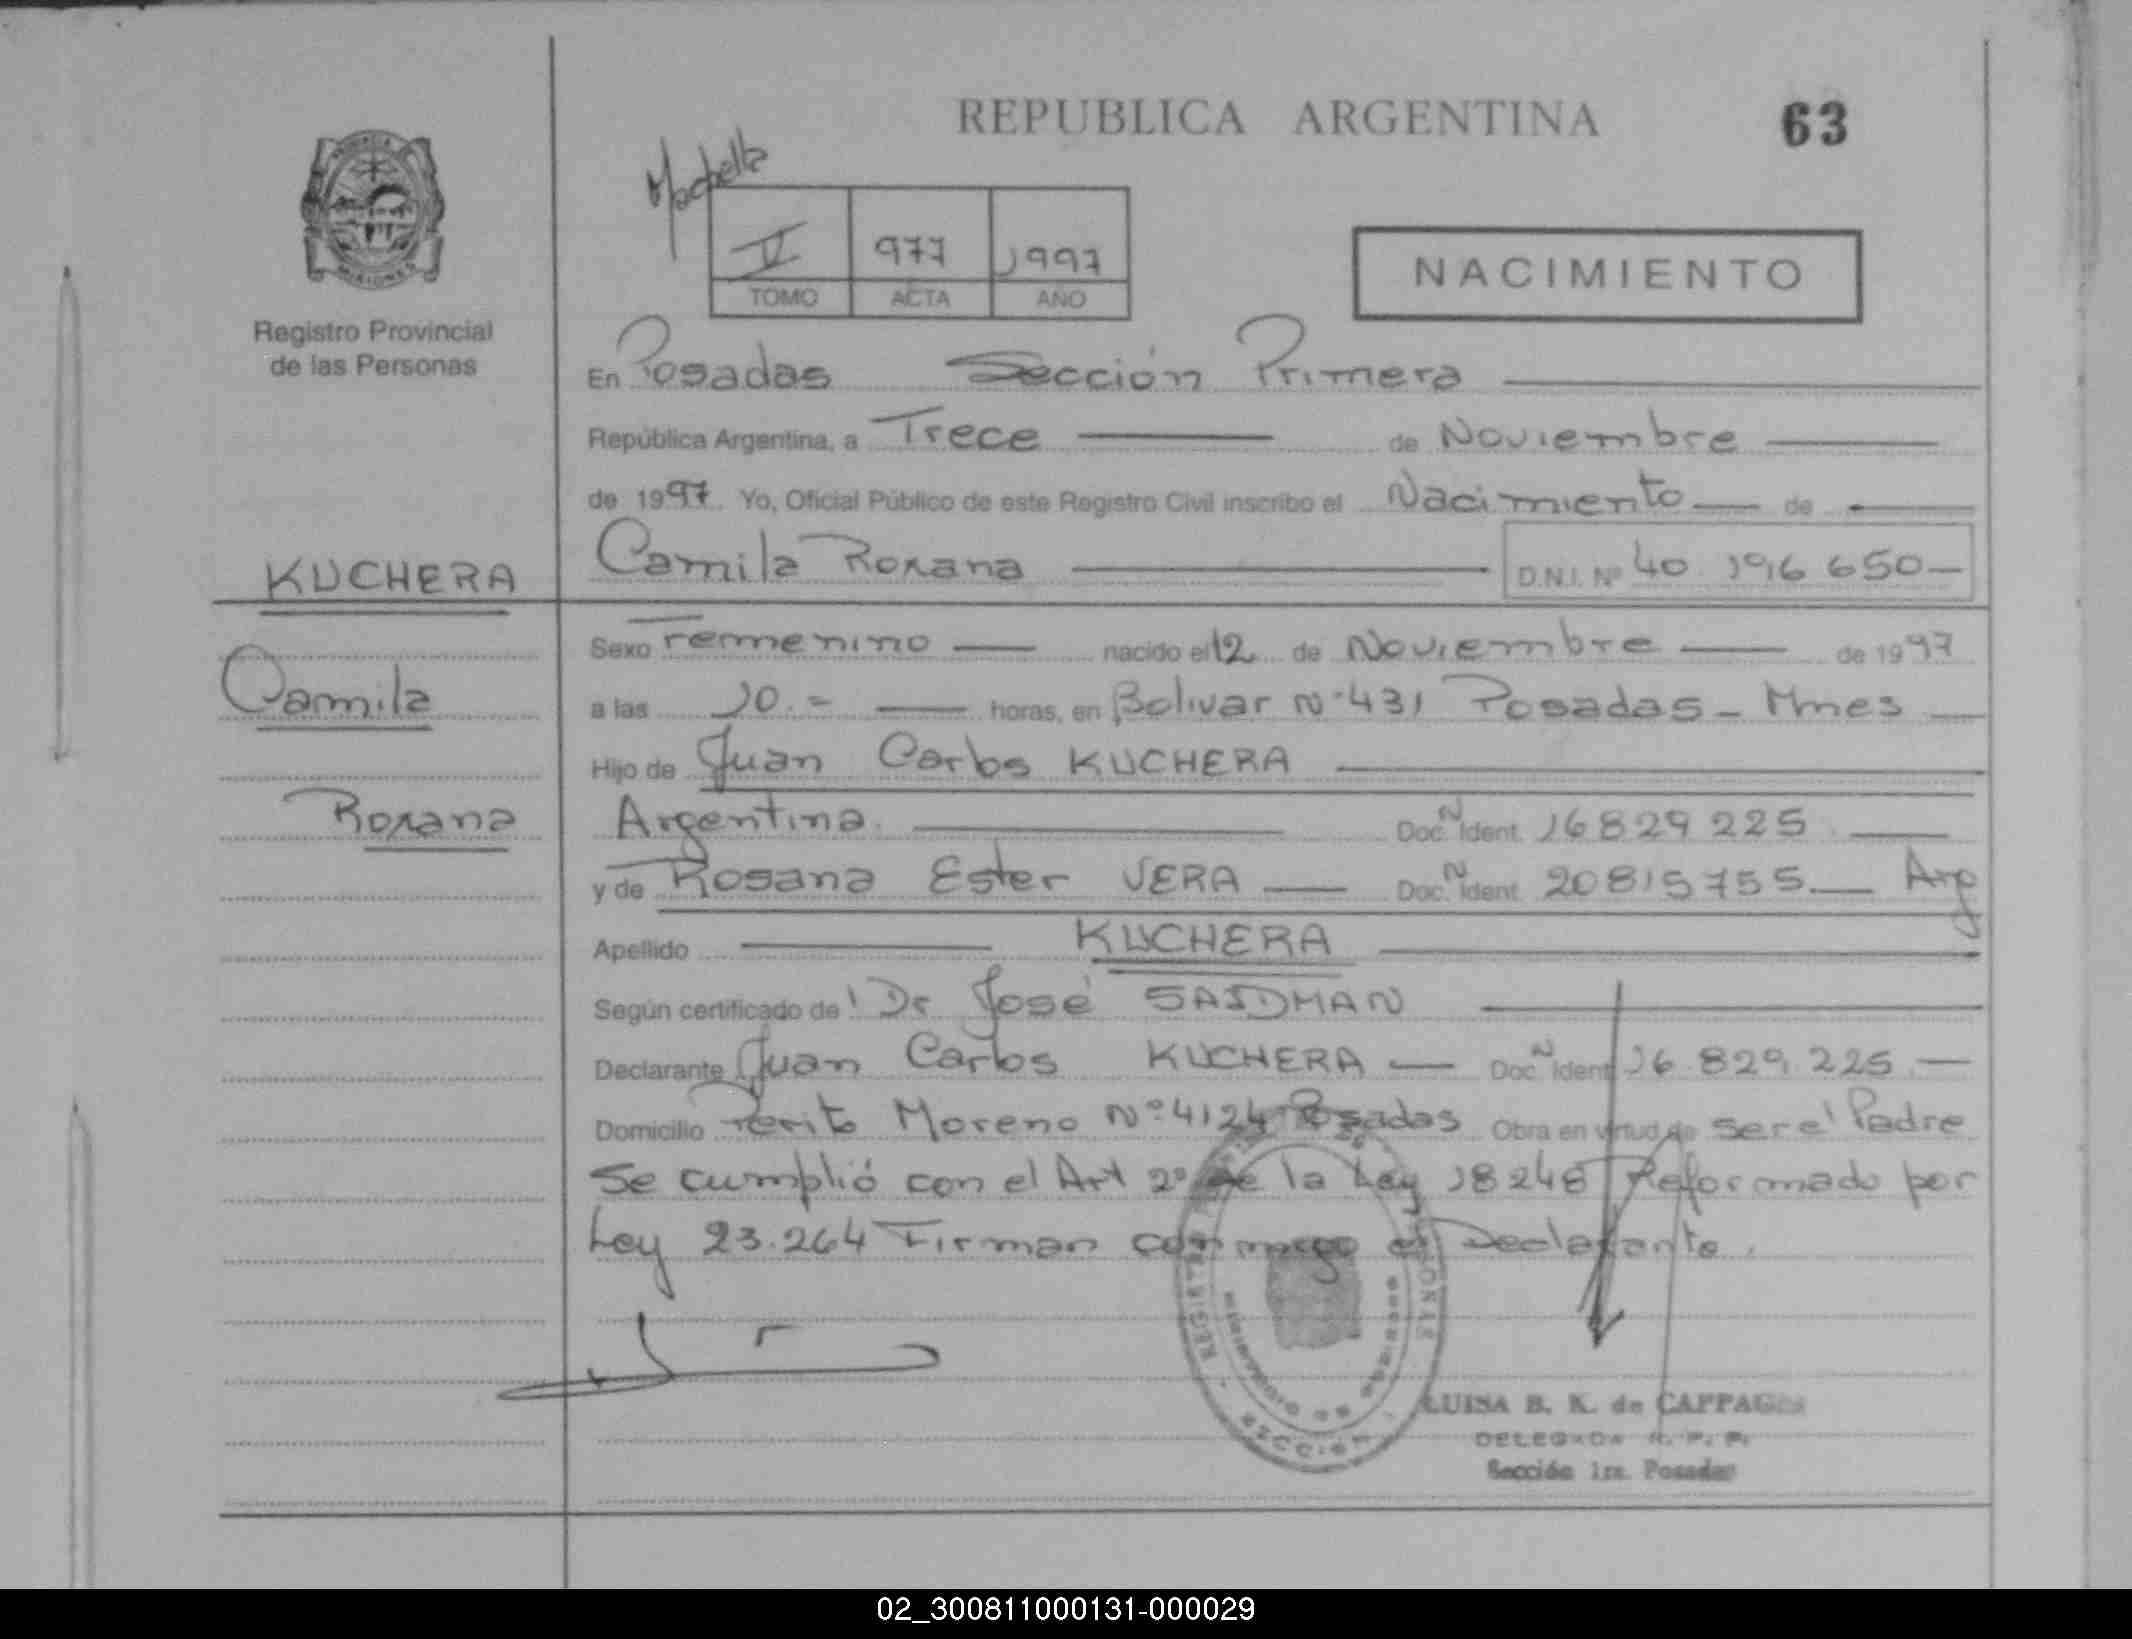 REPUBLICA ARGENTINA
63
V 977 1997
TOMO ACTA AÑO
NACIMIENTO
Registro Provincial
de las Personas
En Posadas Sección Primera
República Argentina, a Trece de Noviembre
de 1997. Yo, Oficial Público de este Registro Civil inscribo el Nacimiento de
KUCHERA
Camila Roxana
D.N.I. Nº 40.196.650
Camila
Roxana
Sexo Femenino nacido el 12 de Noviembre de 1997
a las 10.= horas, en Bolivar Nº 431 Posadas - Mnes
Hijo de Juan Carlos KUCHERA
Argentina. Doc. N Ident. 16829225
y de Rosana Ester VERA Doc. N Ident. 20815755 Arg
Apellido KUCHERA
Según certificado de Dr José SAIDMAN
Declarante Juan Carlos KUCHERA Doc. N Ident 16.829.225
Domicilio Perito Moreno Nº 4124 Posadas Obra en virtud de ser el Padre
Se cumplió con el Art 2º de la Ley 18248 Reformado por
Ley 23.264 Firman conmigo el Declarante.
LUISA B. K. de
DELEGADA R. P. P.
Sección 1ra. Posadas
02_300811000131-000029